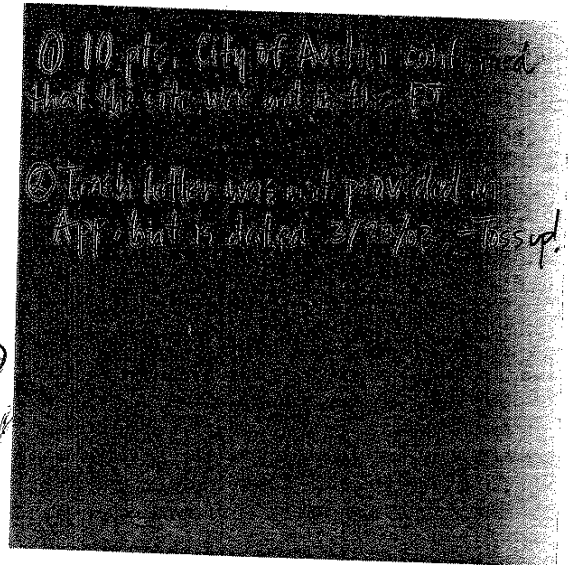 ① 10 pts. City of Austin confirmed
that the site was not in the ETJ
② letter was not provided in
App. but is dated -Tossup!